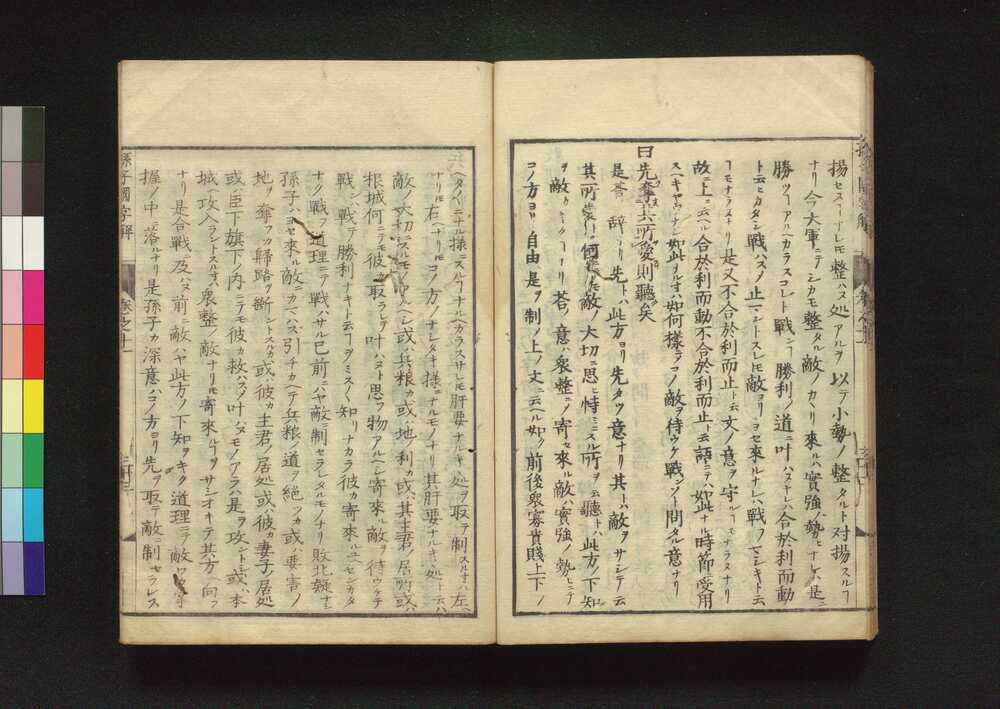 揚セスト一レモ整ハス処アルヲ以テ小勢ノ整タルト対揚スルヿ
ナリ今大軍ニテシカモ整タル敵ノカリ來ルハ實強ノ勢ヒナレハ是ニ
勝ツヿアルヘカラスコレト戰シテ勝利ノ道ニ叶ハスナレハ合於利而動
ト云ヒカタシ戰ハスノ止マントスレモ敵ヨリヨセ來ルナレハ戰ノマシキトモ云
ヿモナラスナリ是又不合於利而止ト云文ノ意ヲ守ルヿモナラスナリ
故ニ上ニ云ヘル合於利而動不合於利而止ト云語ニテハ如此ナ時節受用
スヘキヤウナシ如此ナルオハ如何様ニテコノ敵ヲ待ウケ戰ンソト問タル意ナリ
曰先奪其所愛則聽矣
是答辞ナリ先トハ此方ヨリ先タツ意ナリ其トハ敵ヲサシテ云
其所愛トハ何ニモ敵ノ大切ニ思ヒ恃ミニスル所ヲ云聽トハ此方ノ下知
ヲ敵カキクヿナリ荅ノ意ハ衆整ニテ寄セ來ル敵ハ實強ノ勢ヒニテ
コノ方ヨリ自由ニ是ヲ制ノ上ノ文ニ云ヘル如ク前後衆寡貴賤上下ノ
ヘタ〱ニナル様ニスルヿナルヘカラスサレモ肝要ナルキヲ処ヲ取テ制スルオハ左
ナリモ右ヘナリモコノ方ノナシタキ様ニナルモノナリ其肝要ナルキ処ト云ハ
敵ノ大切ニスルモノアルヘシ或ハ兵粮カ或ハ地ノ利カ或ハ其主君ノ居所或ハ
根城何ニテモ彼ニ取ラレテ叶ハスト思フ物アルヘシ寄來ル敵ヲ待ウケテ
戰ンニ戰テ勝利ナキト云ヿヲミス〱知リナカラ彼カ寄來ルユヘセンカタ
ナク戰フ道理ニテ戰ハサル已前ニハヤ敵ニ制セラレタルモノナリ敗北疑ナシ
孫子ノヨセ來ル敵ニカマハス引チカヘテ兵粮ノ道ヲ絶ツカ或ハ要害ノ
地ヲ奪フカ歸路ヲ断ントスルカ或ハ彼カ主君ノ居処或ハ彼カ妻子ノ居処
或ハ臣下旗下ノ内ニテモ彼カ救ハスノ叶ハヌモノアラハ是ヲ攻ントシ或ハ本
城ヘ攻入ラントスルオハ衆整ノ敵ナリモ寄來ルヿヲサシオキテ其方ヘ向フ
ナリ是合戰ニ及ハヌ前ニ敵ハヤ此方ノ下知ヲキク道理ニテ敵ハ我掌
握ノ中ニ落ルナリ是孫子カ深意ハコノ方ヨリ先ヲ取テ敵ニ制セラレス
孫子國字解
卷之十一